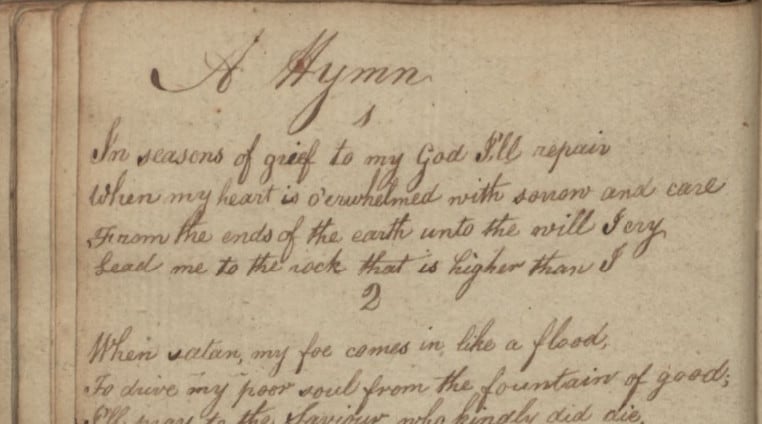 A Hymn
1
In seasons of grief to my God I'll repair
When my heart is o'erwhelmed with sorrow and care
From the ends of the earth unto the will I cry
Lead me to the rock that is higher than I
2
When satan, my foe comes in, like a flood,
To drive my poor soul from the fountain of good;
I'll pray to the Saviour who kindly did die,